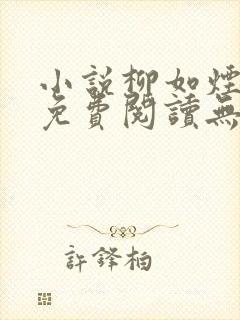 小說柳如煙
免費閱讀無
許鋒柏